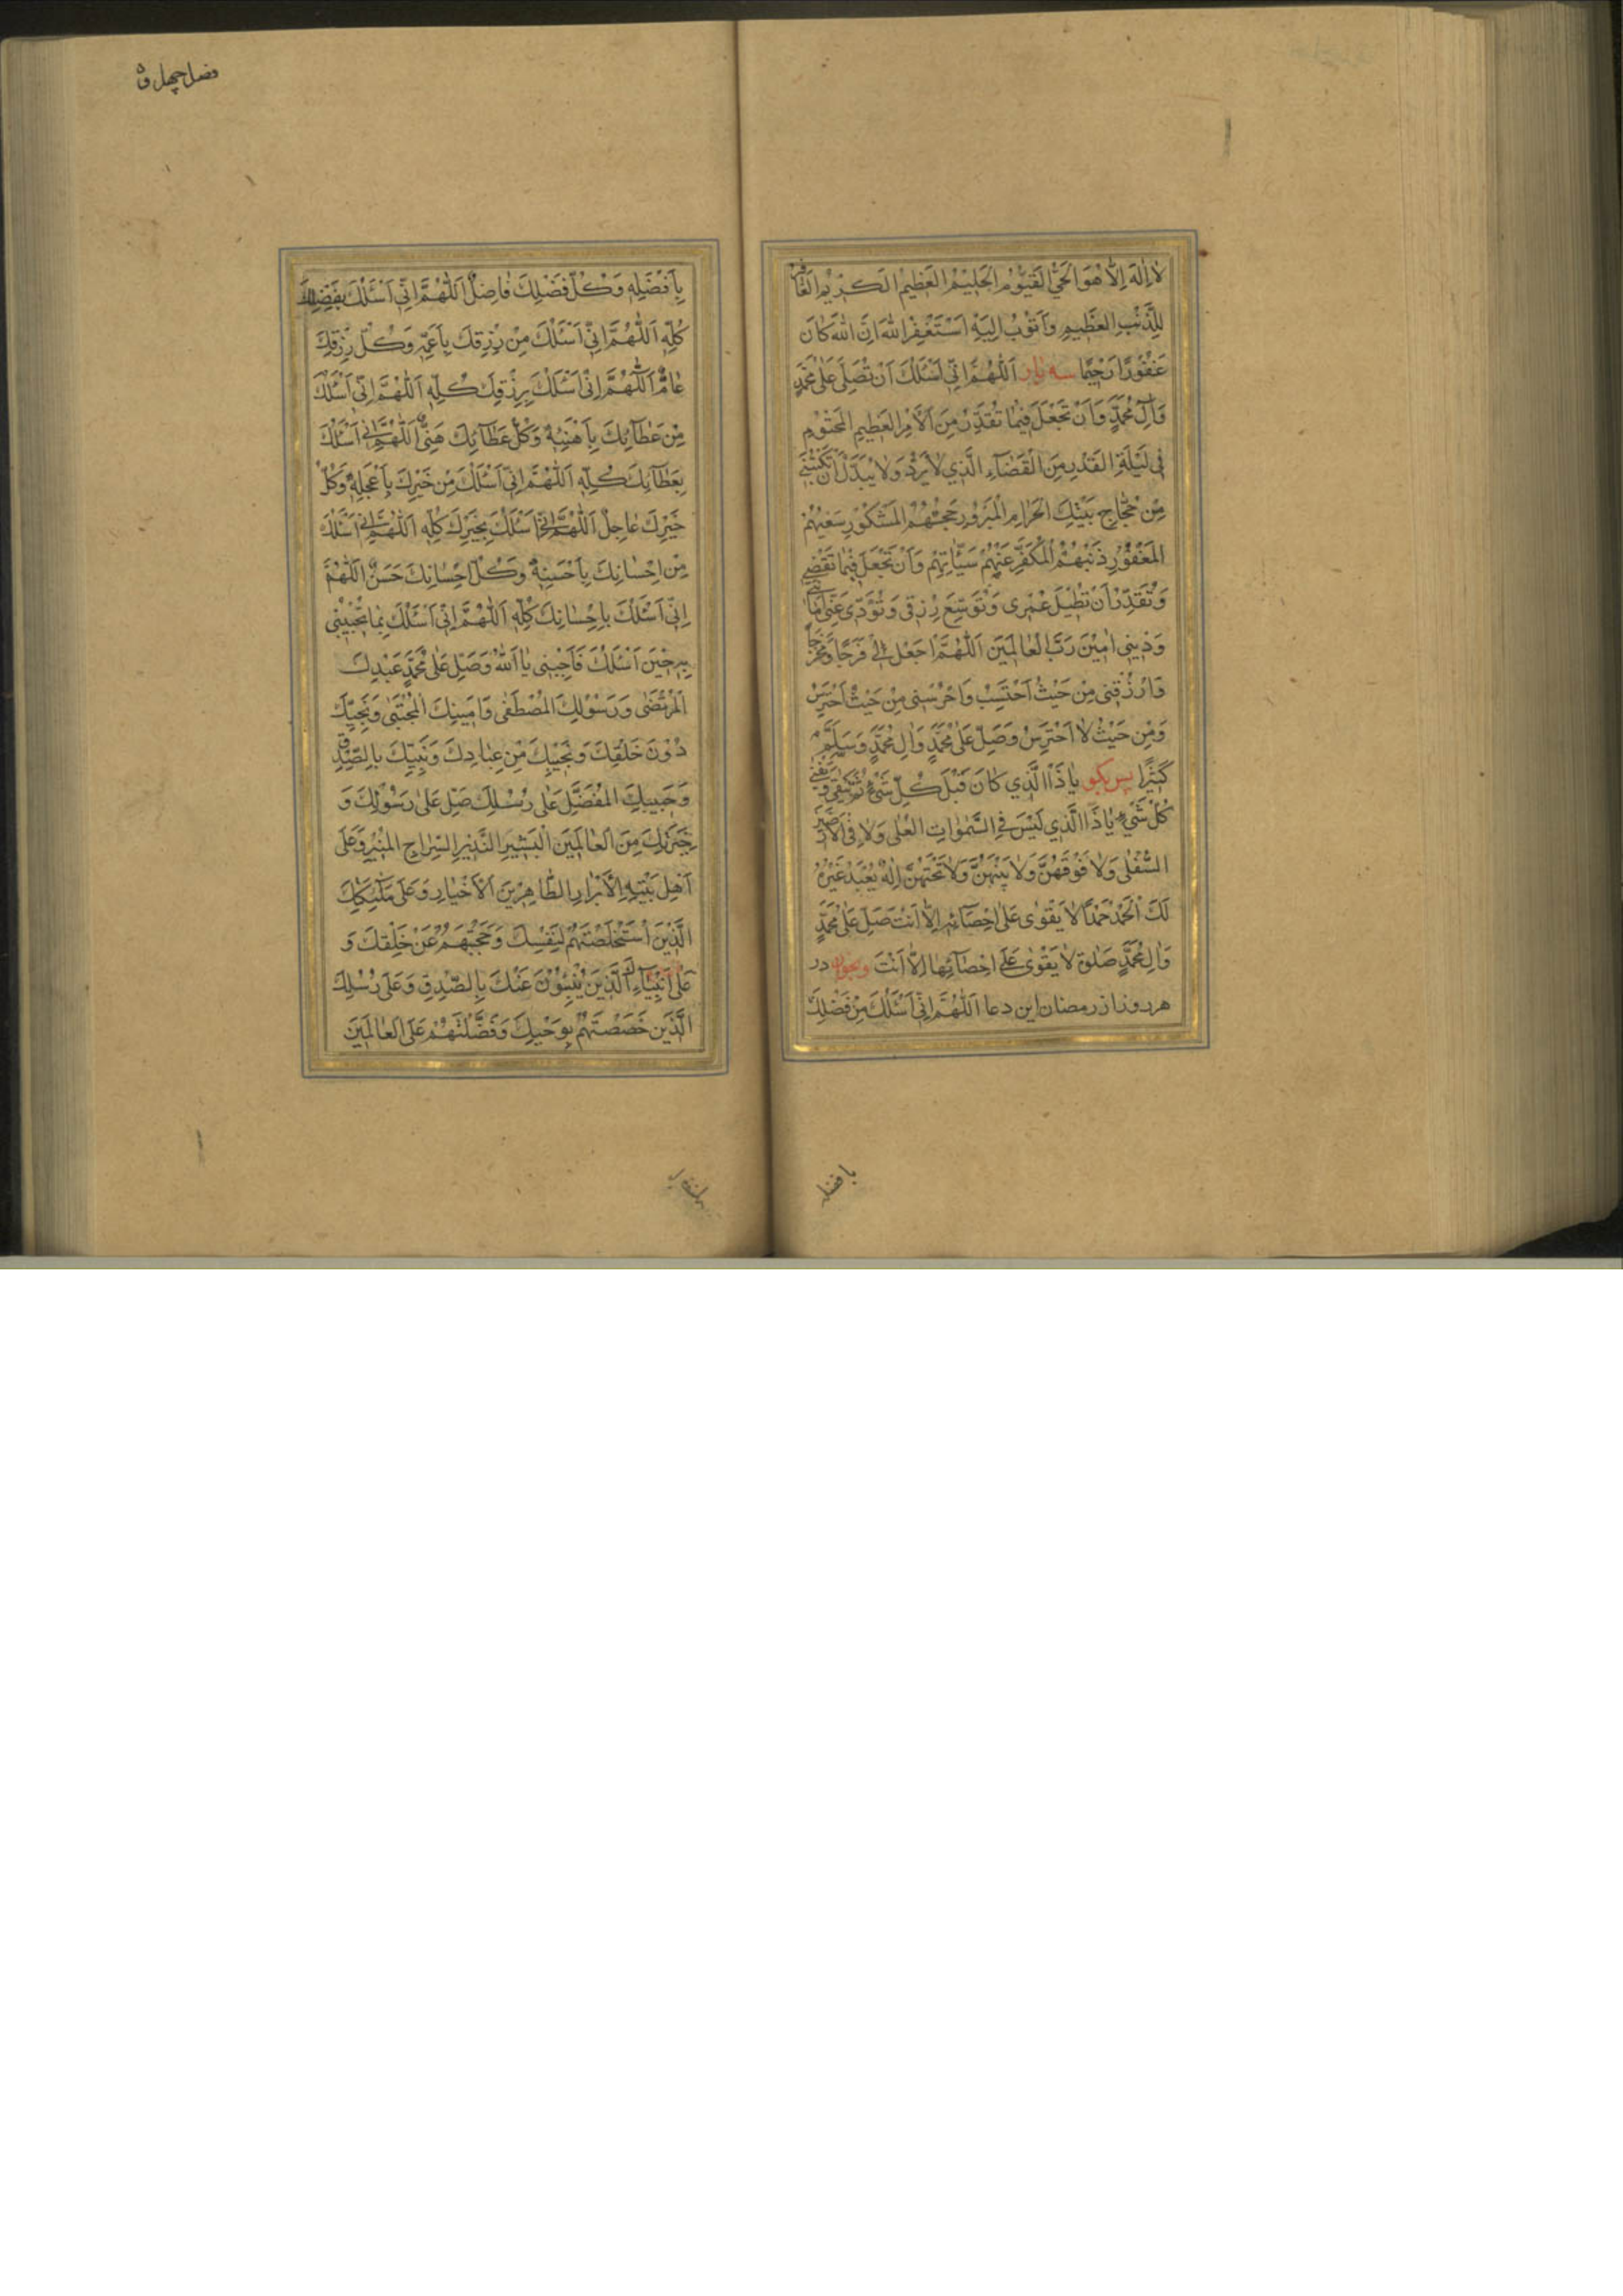 لا اِلٰهَ اِلاّ هُوَ الْحَيُّ الْقَيُّومُ الْحَلِيْمُ الْعَظِيمُ الْكَرِيْمُ الْغافِرُ
لِلذَّنْبِ الْعَظِيمِ وَاَتُوْبُ اِلَيْهِ اَسْتَغْفِرُ اللهَ اِنَّ اللهَ كانَ
غَفُوْرًا رَحِيْمًا سه بار اَللّٰهُمَّ اِنّي اَسْئَلُكَ اَنْ تُصَلِّيَ عَلٰى مُحَمَّدٍ
وَآلِ مُحَمَّدٍ وَاَنْ تَجْعَلَ فِيْما تُقَدِّرُ مِنَ الْاَمْرِ الْعَظِيمِ الْمَحْتُوْمِ
فِي لَيْلَةِ الْقَدْرِ مِنَ الْقَضآءِ الَّذِي لا يُرَدُّ وَلا يُبَدَّلُ اَنْ تَكْتُبَنِي
مِنْ حُجّاجِ بَيْتِكَ الْحَرامِ الْمَبْرُوْرِ حَجُّهُمْ الْمَشْكُوْرِ سَعْيُهُمْ
الْمَغْفُوْرِ ذَنْبُهُمْ الْمُكَفَّرِ عَنْهُمْ سَيِّئاتِهِمْ وَاَنْ تَجْعَلَ فِيْما تَقْضِي
وَتُقَدِّرُ اَنْ تُطِيْلَ عُمْرِى وَتُوَسِّعَ رِزْقِى وَتُؤَدِّىَ عَنّى اَمانَتِي
وَدَيْنِى اٰمِيْنَ رَبَّ الْعالَمِيْنَ اَللّٰهُمَّ اجْعَلْ لِي فَرَجًا وَمَخْرَجًا
وَارْزُقْنِى مِنْ حَيْثُ اَحْتَسِبُ وَاحْرُسْنِى مِنْ حَيْثُ اَحْتَرِسُ
وَمِنْ حَيْثُ لا اَحْتَرِسُ وَصَلِّ عَلٰى مُحَمَّدٍ وَآلِ مُحَمَّدٍ وَسَلِّمْ
كَثِيْرًا پس بگو يا ذَا الَّذِي كانَ قَبْلَ كُلِّ شَيْءٍ ثُمَّ يَبْقٰى وَيَفْنٰى
كُلُّ شَيْءٍ يا ذَا الَّذِي لَيْسَ فِي السَّمٰواتِ الْعُلٰى وَلا فِى الْاَرَضِيْنَ
السُّفْلٰى وَلا فَوْقَهُنَّ وَلا بَيْنَهُنَّ وَلا تَحْتَهُنَّ اِلٰهٌ يُعْبَدُ غَيْرُهُ
لَكَ الْحَمْدُ حَمْدًا لا يَقْوٰى عَلٰى اِحْصآئِهِ اِلاّ اَنْتَ صَلِّ عَلٰى مُحَمَّدٍ
وَآلِ مُحَمَّدٍ صَلٰوةً لا يَقْوٰى عَلٰى اِحْصآئِها اِلاّ اَنْتَ وبخوان در
هر روز از رمضان اين دعا اَللّٰهُمَّ اِنّي اَسْئَلُكَ مِنْ فَضْلِكَ
بافضله
فصل چهل و
بِاَفْضَلِهِ وَكُلُّ فَضْلِكَ فاضِلٌ اَللّٰهُمَّ اِنّي اَسْئَلُكَ بِفَضْلِكَ
كُلِّهِ اَللّٰهُمَّ اِنّي اَسْئَلُكَ مِنْ رِزْقِكَ بِاَعَمِّهِ وَكُلُّ رِزْقِكَ
عامٌّ اَللّٰهُمَّ اِنّي اَسْئَلُكَ بِرِزْقِكَ كُلِّهِ اَللّٰهُمَّ اِنّي اَسْئَلُكَ
مِنْ عَطآئِكَ بِاَهْنَئِهِ وَكُلُّ عَطآئِكَ هَنِيءٌ اَللّٰهُمَّ اِنّي اَسْئَلُكَ
بِعَطآئِكَ كُلِّهِ اَللّٰهُمَّ اِنّي اَسْئَلُكَ مِنْ خَيْرِكَ بِاَعْجَلِهِ وَكُلُّ
خَيْرِكَ عاجِلٌ اَللّٰهُمَّ اِنّي اَسْئَلُكَ بِخَيْرِكَ كُلِّهِ اَللّٰهُمَّ اِنّي اَسْئَلُكَ
مِنْ اِحْسانِكَ بِاَحْسَنِهِ وَكُلُّ اِحْسانِكَ حَسَنٌ اَللّٰهُمَّ
اِنّي اَسْئَلُكَ بِاِحْسانِكَ كُلِّهِ اَللّٰهُمَّ اِنّي اَسْئَلُكَ بِما تُجِيْبُنِى
بِهِ حِيْنَ اَسْئَلُكَ فَاَجِبْنِى يا اَللهُ وَصَلِّ عَلٰى مُحَمَّدٍ عَبْدِكَ
الْمُرْتَضٰى وَرَسُوْلِكَ الْمُصْطَفٰى وَاَمِينِكَ الْمُجْتَبٰى وَنَجِيِّكَ
دُوْنَ خَلْقِكَ وَنَجِيْبِكَ مِنْ عِبادِكَ وَنَبِيِّكَ بِالصِّدْقِ
وَحَبِيبِكَ الْمُفَضَّلِ عَلٰى رُسُلِكَ صَلِّ عَلٰى رَسُوْلِكَ وَ
خِيَرَتِكَ مِنَ الْعالَمِيْنَ الْبَشِيْرِ النَّذِيْرِ السِّراجِ الْمُنِيْرِ وَعَلٰى
اَهْلِ بَيْتِهِ الْاَبْرارِ الطّاهِرِيْنَ الْاَخْيارِ وَعَلٰى مَلٰئِكَتِكَ
الَّذِيْنَ اسْتَخْلَصْتَهُمْ لِنَفْسِكَ وَحَجَبْتَهُمْ عَنْ خَلْقِكَ وَ
عَلٰى اَنْبِيآئِكَ الَّذِيْنَ يُنْبِئُوْنَ عَنْكَ بِالصِّدْقِ وَعَلٰى رُسُلِكَ
الَّذِيْنَ خَصَصْتَهُمْ بِوَحْيِكَ وَفَضَّلْتَهُمْ عَلَى الْعالَمِيْنَ